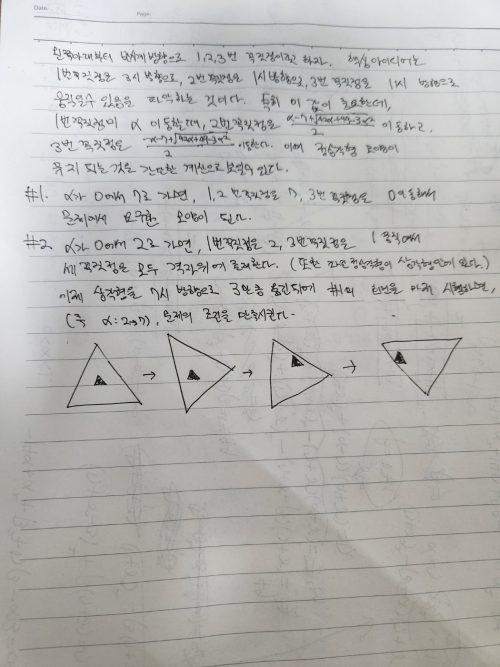 Date.
Page.
왼쪽아래부터 반시계방향으로 1, 2, 3번 꼭짓점이라고 하자. 핵심아이디어는
1번꼭짓점은 3시 방향으로, 2번 꼭짓점은 1시 방향으로, 3번 꼭짓점을 1시 방향으로
움직일수 있음을 파악하는 것이다. 특히 이 점이 중요한데,
1번 꼭짓점이 α 이동할때, 2번꼭짓점은 이동하고,
3번 꼭짓점은 이동한다. 이때 정삼각형 모양이
유지 되는 것을 간단한 계산으로 보일수 있다.
#1. α가 0에서 7로 가면, 1, 2번 꼭짓점은 7, 3번 꼭짓점은 0 이동해서
문제에서 요구한 모양이 된다.
#2. α가 0에서 2로 가면, 1번꼭짓점은 2, 3번꼭짓점은 1 움직여서
세 꼭짓점은 모두 격자위에 존재한다. (또한 작은 정삼각형이 삼각형안에 있다.)
이제 삼각형을 7시 방향으로 3만큼 옮긴뒤에 #1의 을 마저 시행하면,
(즉 α: 2→7), 문제의 조건을 만족시킨다.